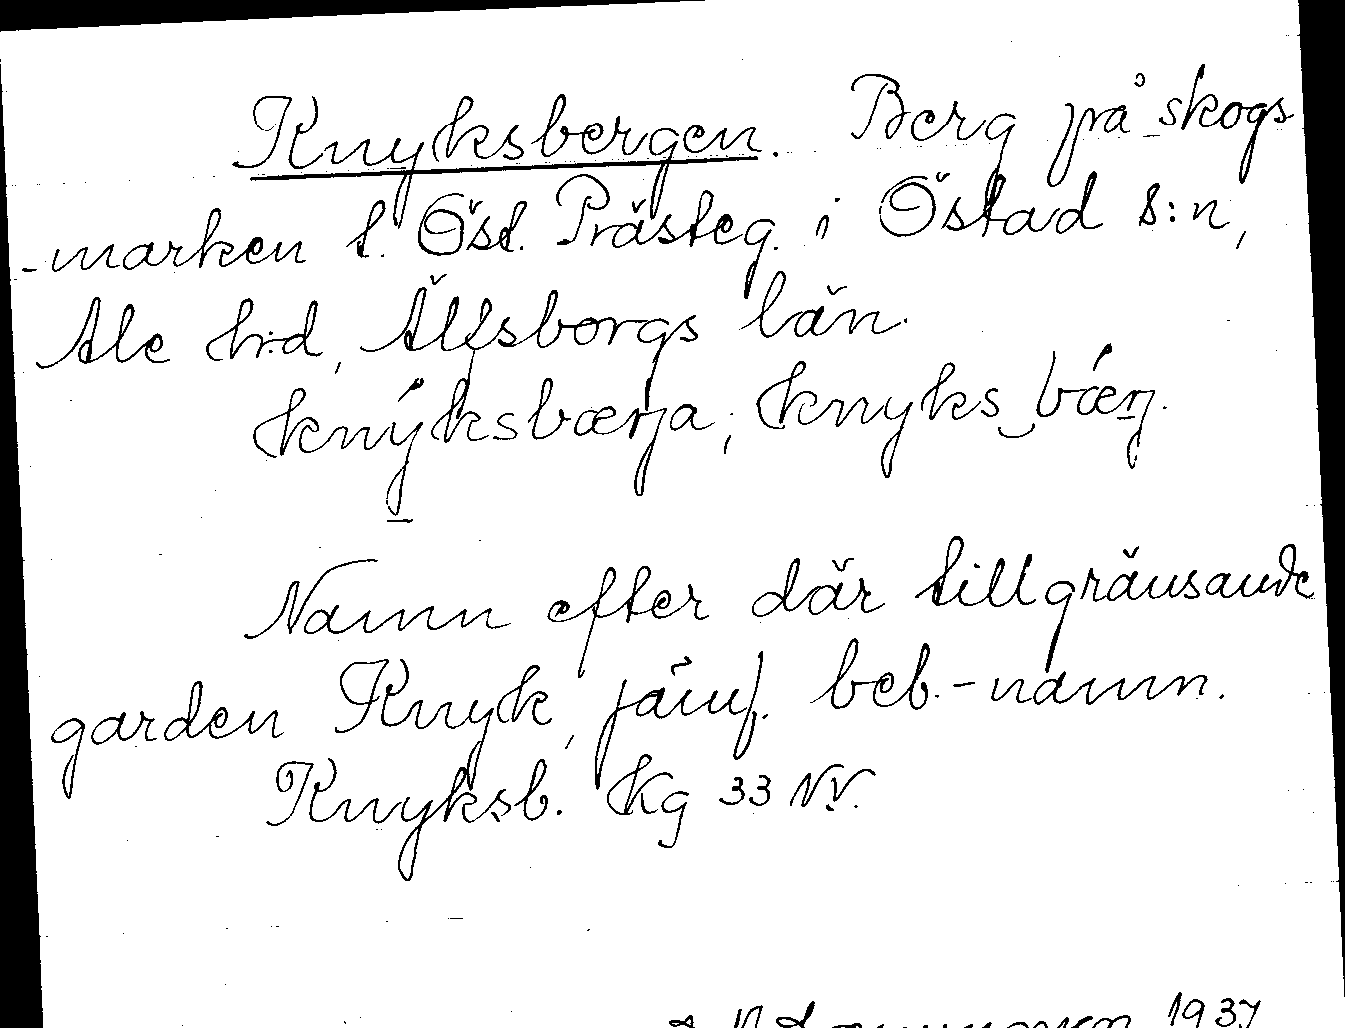 Knyksbergen. Berg på skogs
-marken t. Öst. Prästeg. i Östad s:n,
Ale h:d, Älfsborgs län.
knýksbærja, knyks bǽrj.
Namn efter där tillgränsande
garden Knyk, jämf. beb.-namn.
Knyksb. Kg 33 NV.
1937